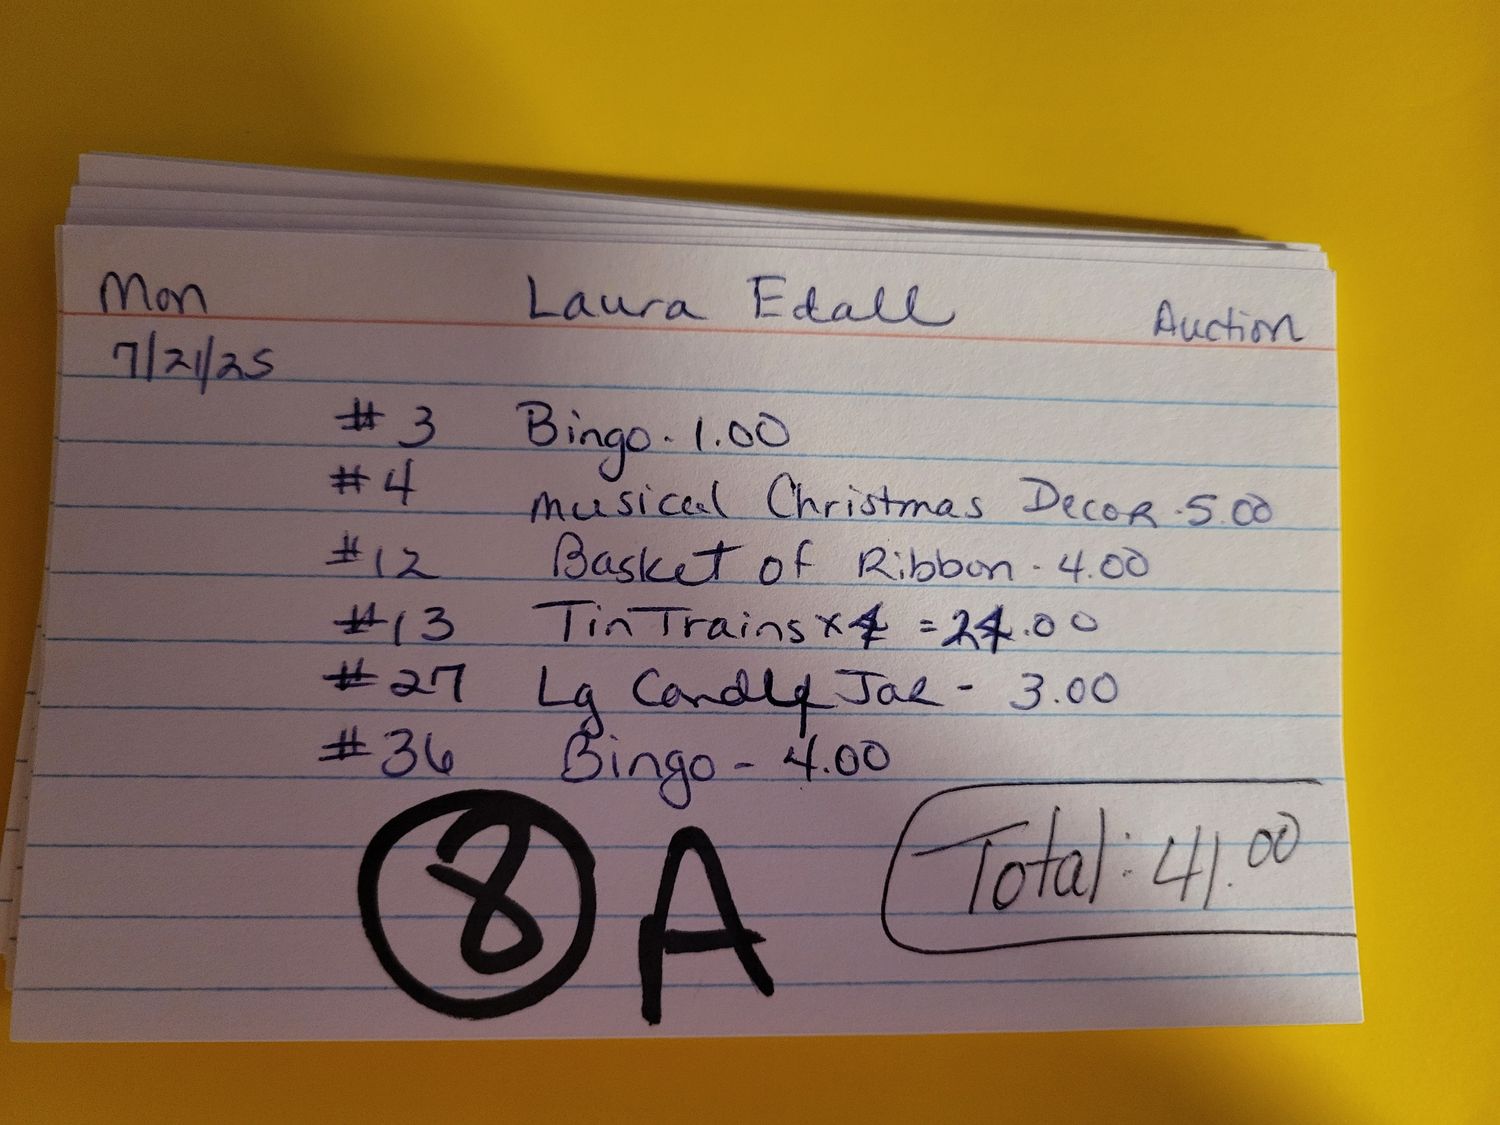 Mon Laura Edall Auction
7/21/25
#3 Bingo - 1.00
#4 Musical Christmas Decor - 5.00
#12 Basket of Ribbon - 4.00
#13 Tin Trains x 4 = 24.00
#27 Lg Candly Jar - 3.00
#36 Bingo - 4.00
8 A
Total: 41.00